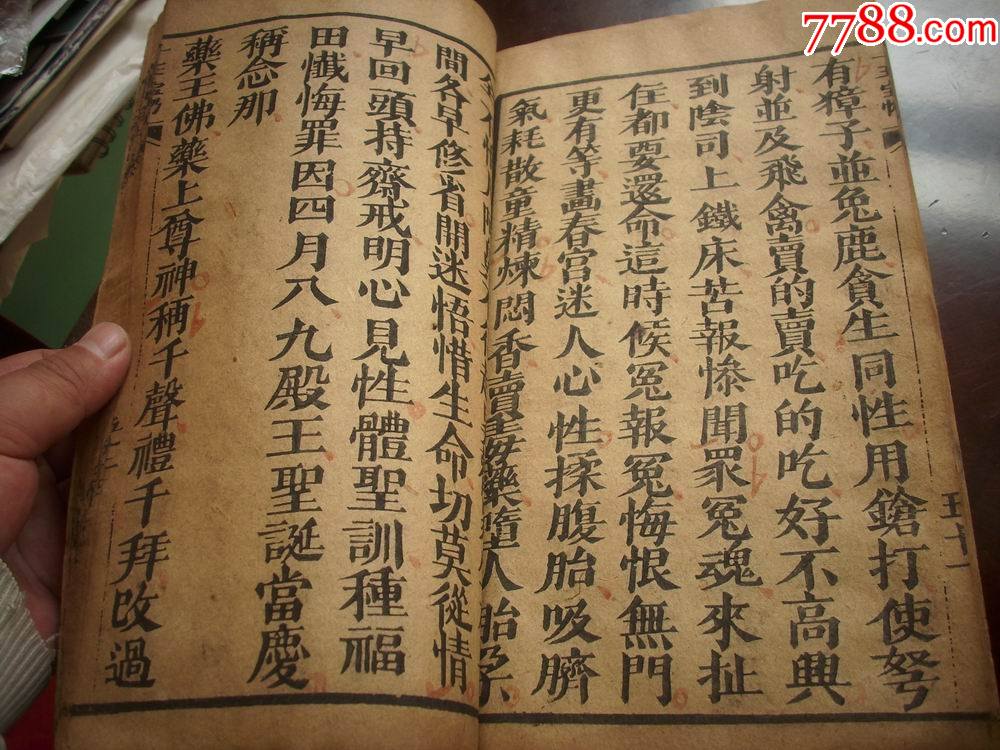 7788.com
有獐子並兔鹿貪生同性用鎗打使弩
射並及飛禽賣的賣吃的吃好不高興
到陰司上鐵床苦報慘聞眾冤魂來扯
住都要還命這時候冤報冤悔恨無門
更有等畫春宮迷人心性揉腹胎吸臍
氣耗散童精煉悶香賣毒藥墮人胎孕
間各早修省開迷悟惜生命切莫從情
早回頭持齋戒明心見性體聖訓種福
田懺悔罪因四月八九殿王聖誕當慶
稱念那
藥王佛藥上尊神稱千聲禮千拜改過
五十一